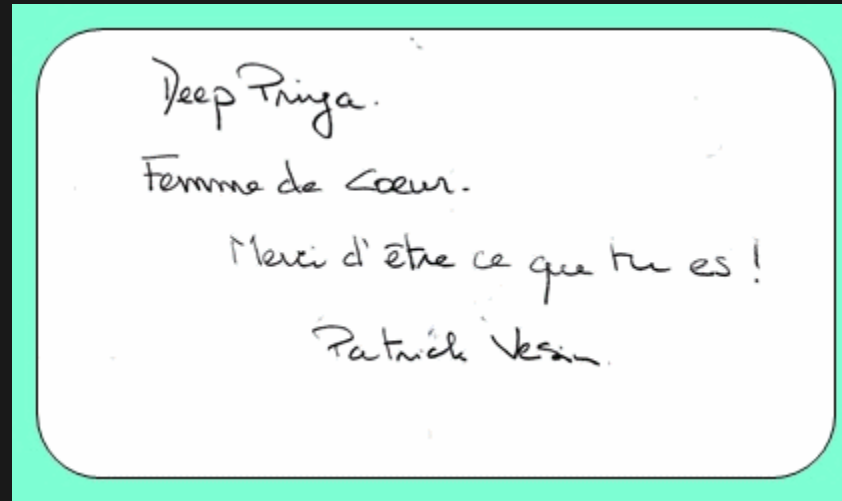 Deep Priya.
Femme de Coeur.
Merci d'être ce que tu es !
Patrick Vesin.